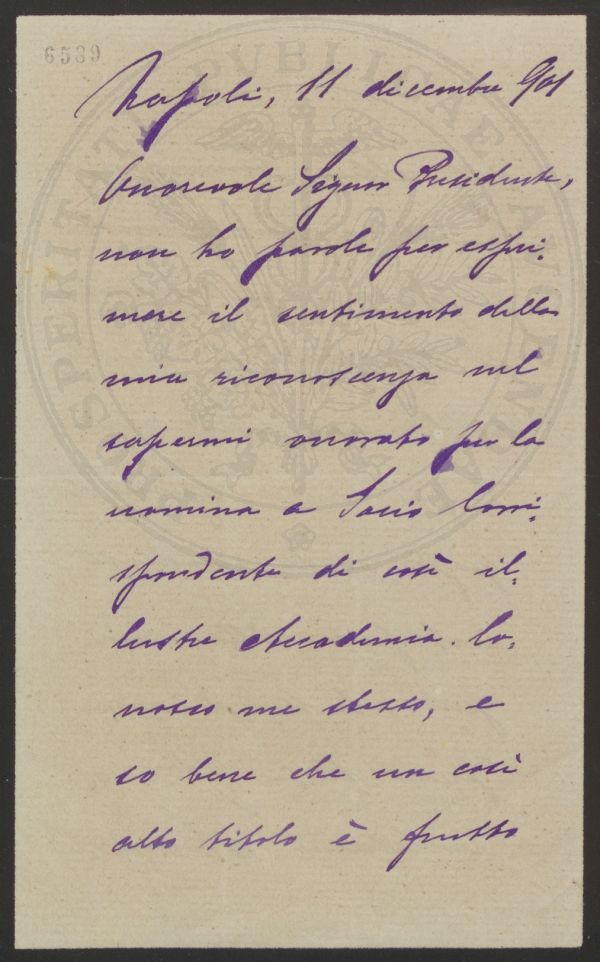 6539
Napoli, 11 dicembre 901
Onorevole Signor Presidente,
non ho parole per espri-
mere il sentimento della
mia riconoscenza nel
sapermi onorato per la
nomina a Socio Corri-
spondente di così il-
lustre Accademia. Co-
nosco me stesso, e
so bene che un così
alto titolo è frutto
PROSPERITATI PUBLICAE AUGENDAE